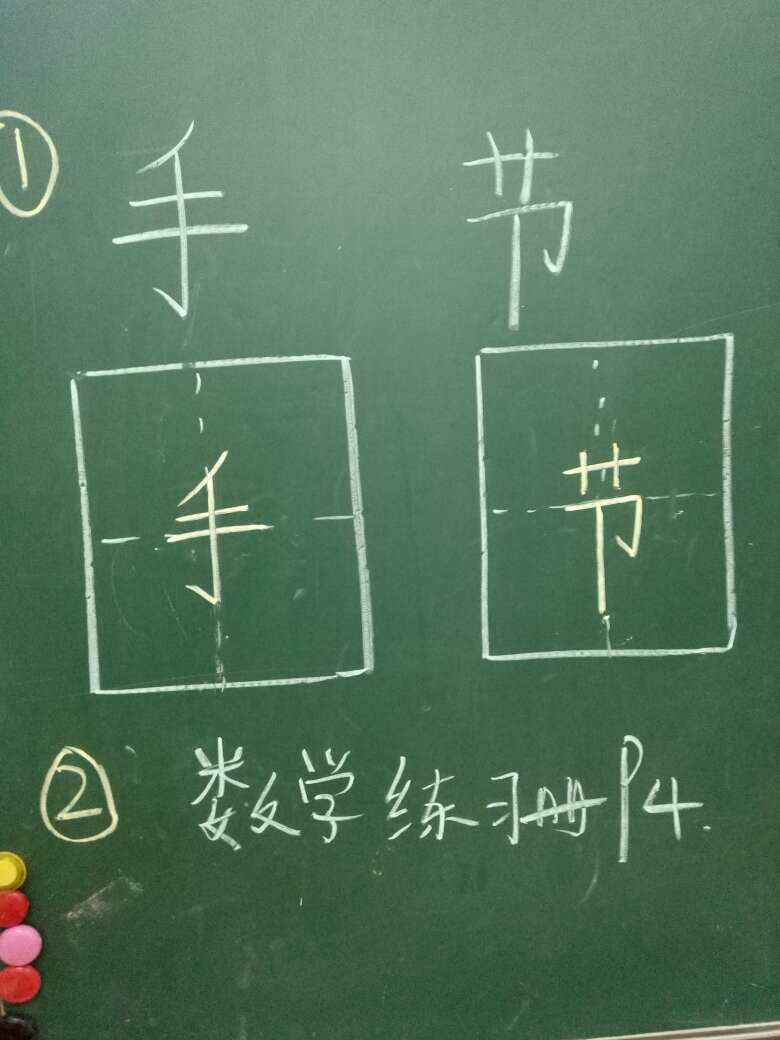 ① 手 节
手 节
② 数学练习册P4.